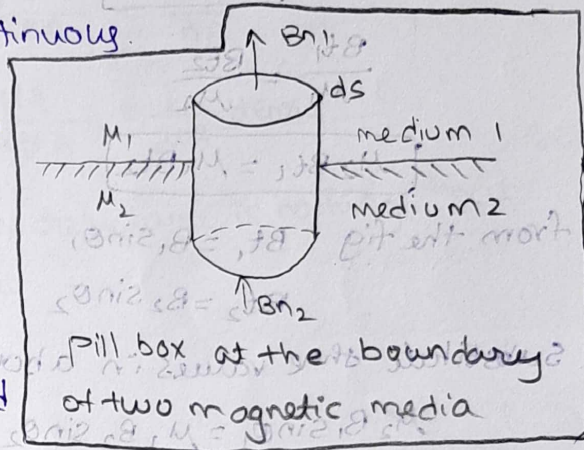 tinuous.
Bn1
ds
μ1 medium 1
μ2 medium2
Bn2
Pill box at the boundary
of two magnetic media